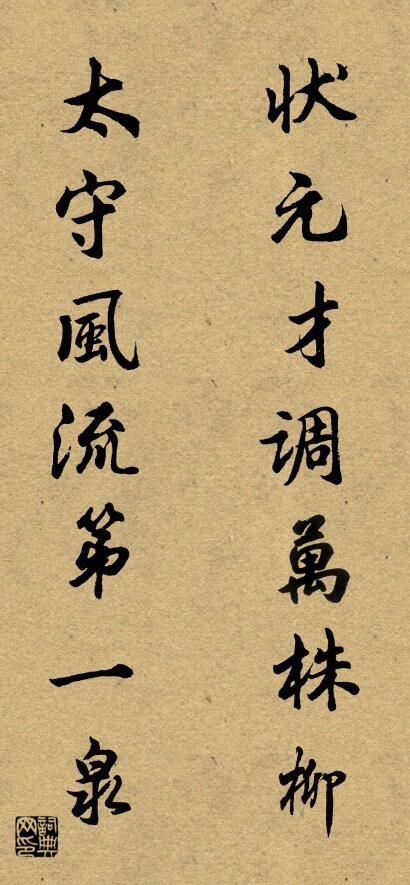 状元才調萬株柳
太守風流第一泉
詞典网印